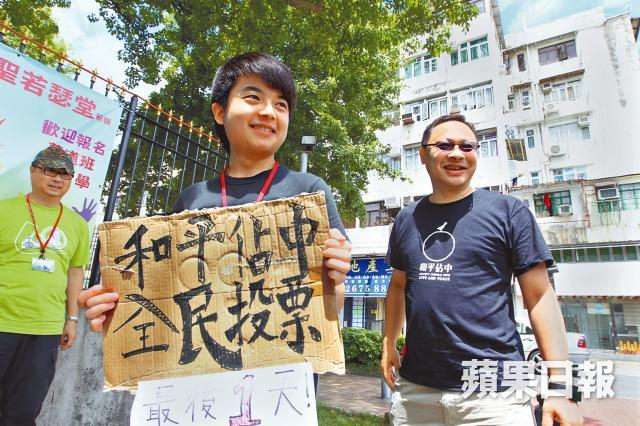 聖若瑟堂
歡迎報名
和平佔中
全民投票
最後1天!
和平佔中
LOVE AND PEACE
地產
2675 88
蘋果日報